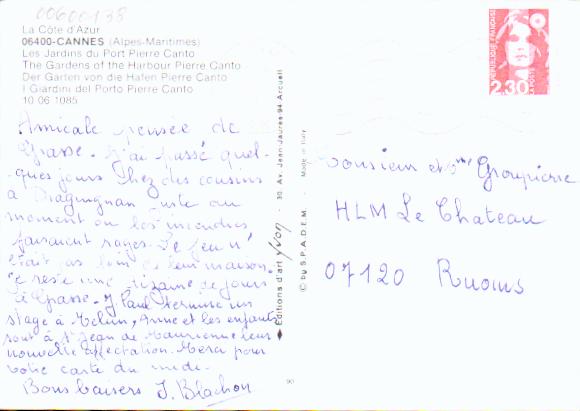 00600138
La Côte d'Azur
06400-CANNES (Alpes-Maritimes)
Les Jardins du Port Pierre Canto
The Gardens of the Harbour Pierre Canto
Der Garten von die Hafen Pierre Canto
I Giardini del Porto Pierre Canto
10 06 1085
Amicale pensée de
Grasse. J'ai passé quel-
ques jours chez des cousins
a Draguignan juste au
moment ou les incendies
faisaient rages. Le feu n'
etait pas loin de leur maison.
Je reste une dizaine de jours
à Grasse. J Paul termine un
stage à Melun, Anne et les enfants
sont à St Jean de Maurienne leur
nouvelle affectation. Merci pour
votre carte du midi.
Bons baisers J. Blachon
◆ Editions d'art yvon - 30, Av. Jean-Jaurès-94-Arcueil
© by S.P.A.D.E.M. - Made in Italy
90
REPUBLIQUE FRANÇAISE
2,30
LA POSTE
Monsieur et Mme Groupierre
HLM Le Chateau
07120 Ruoms